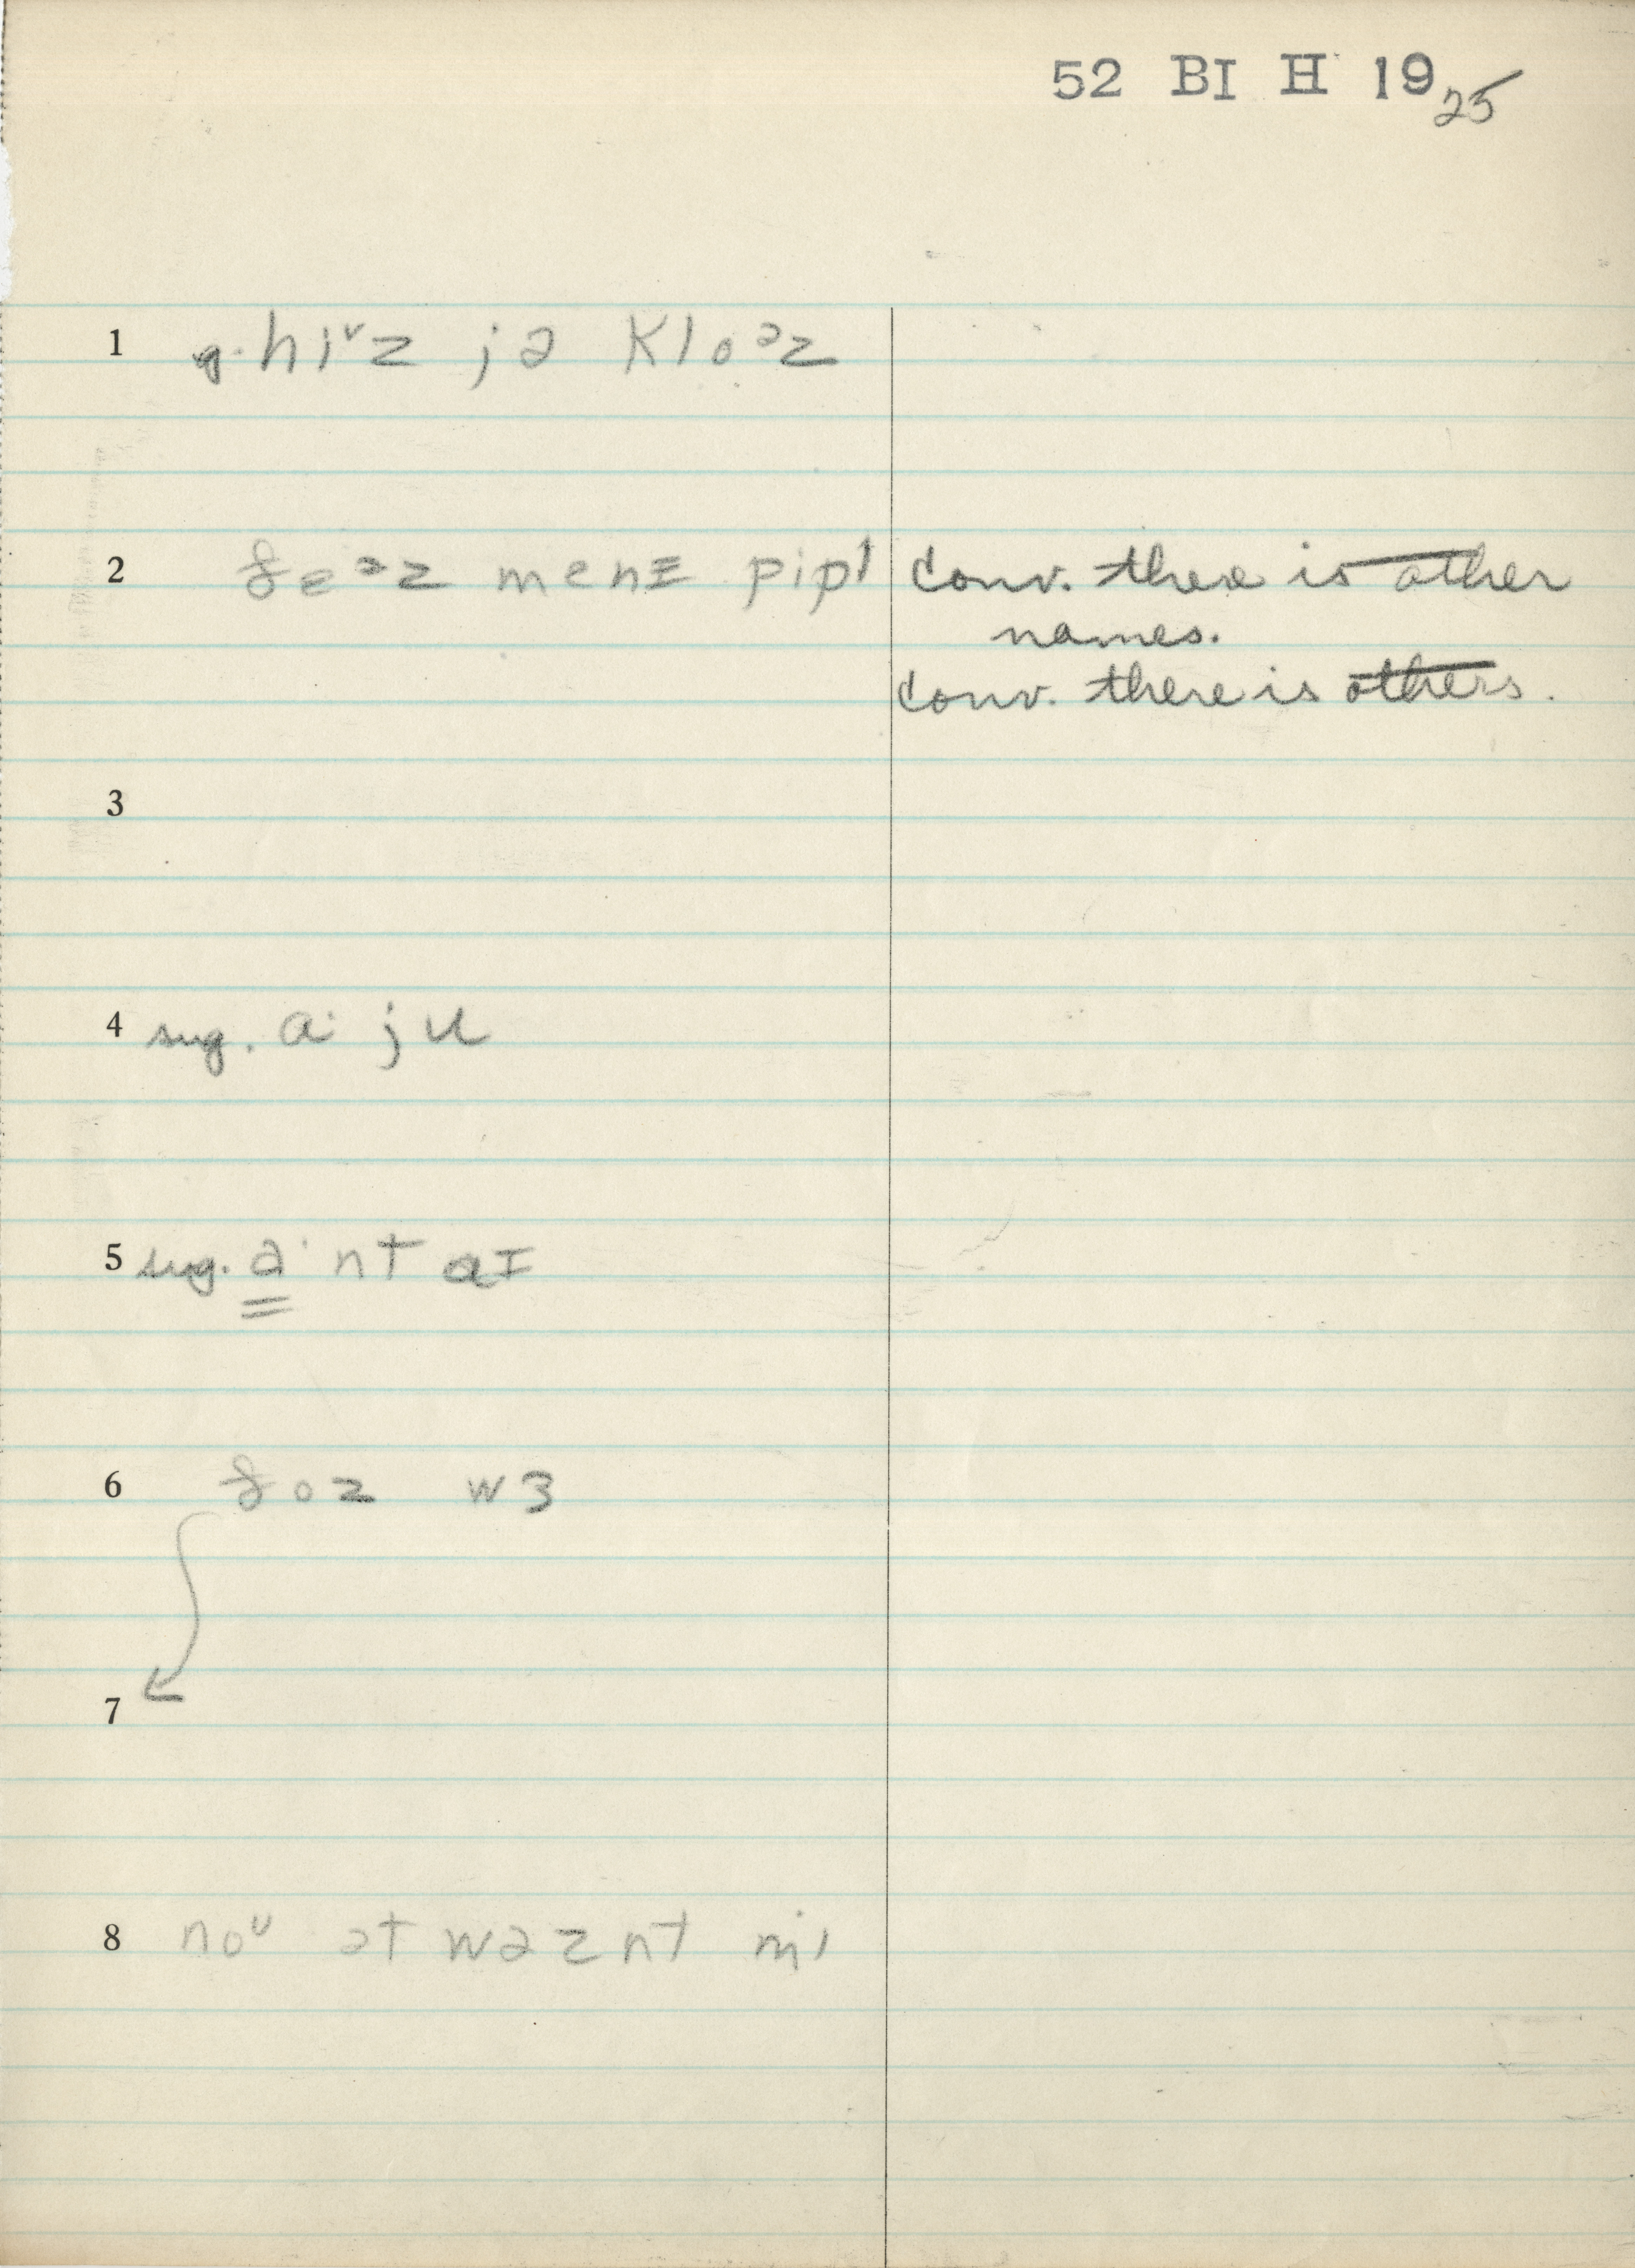 52 BI H 19 25
1 hiᵛz jə kloᵊz
2 ðɛᵊz mɛnɪ pipl
conv. there is other
names.
conv. there is others.
3
4 sug. a· ju
5 sug. a· nt aɪ
6 ðoz wɜ
7
8 noᵁ ət wəznt mi